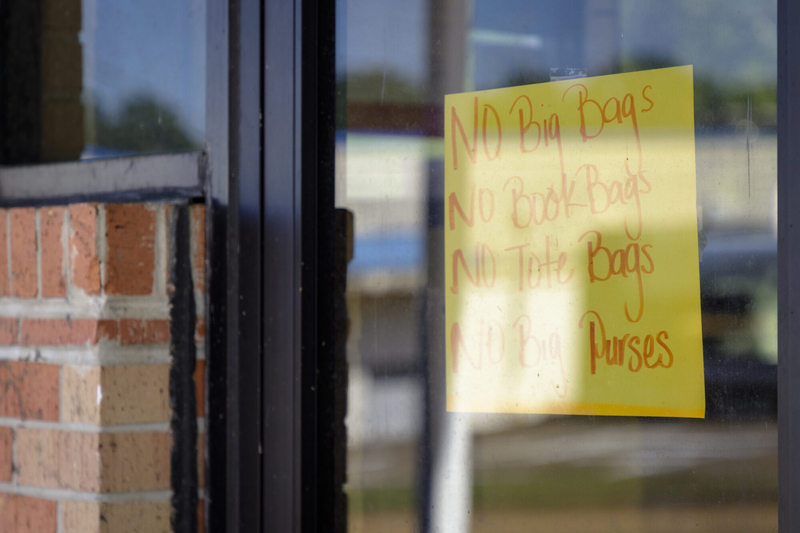 NO Big Bags
NO BookBags
NO Tote Bags
NO Big Purses